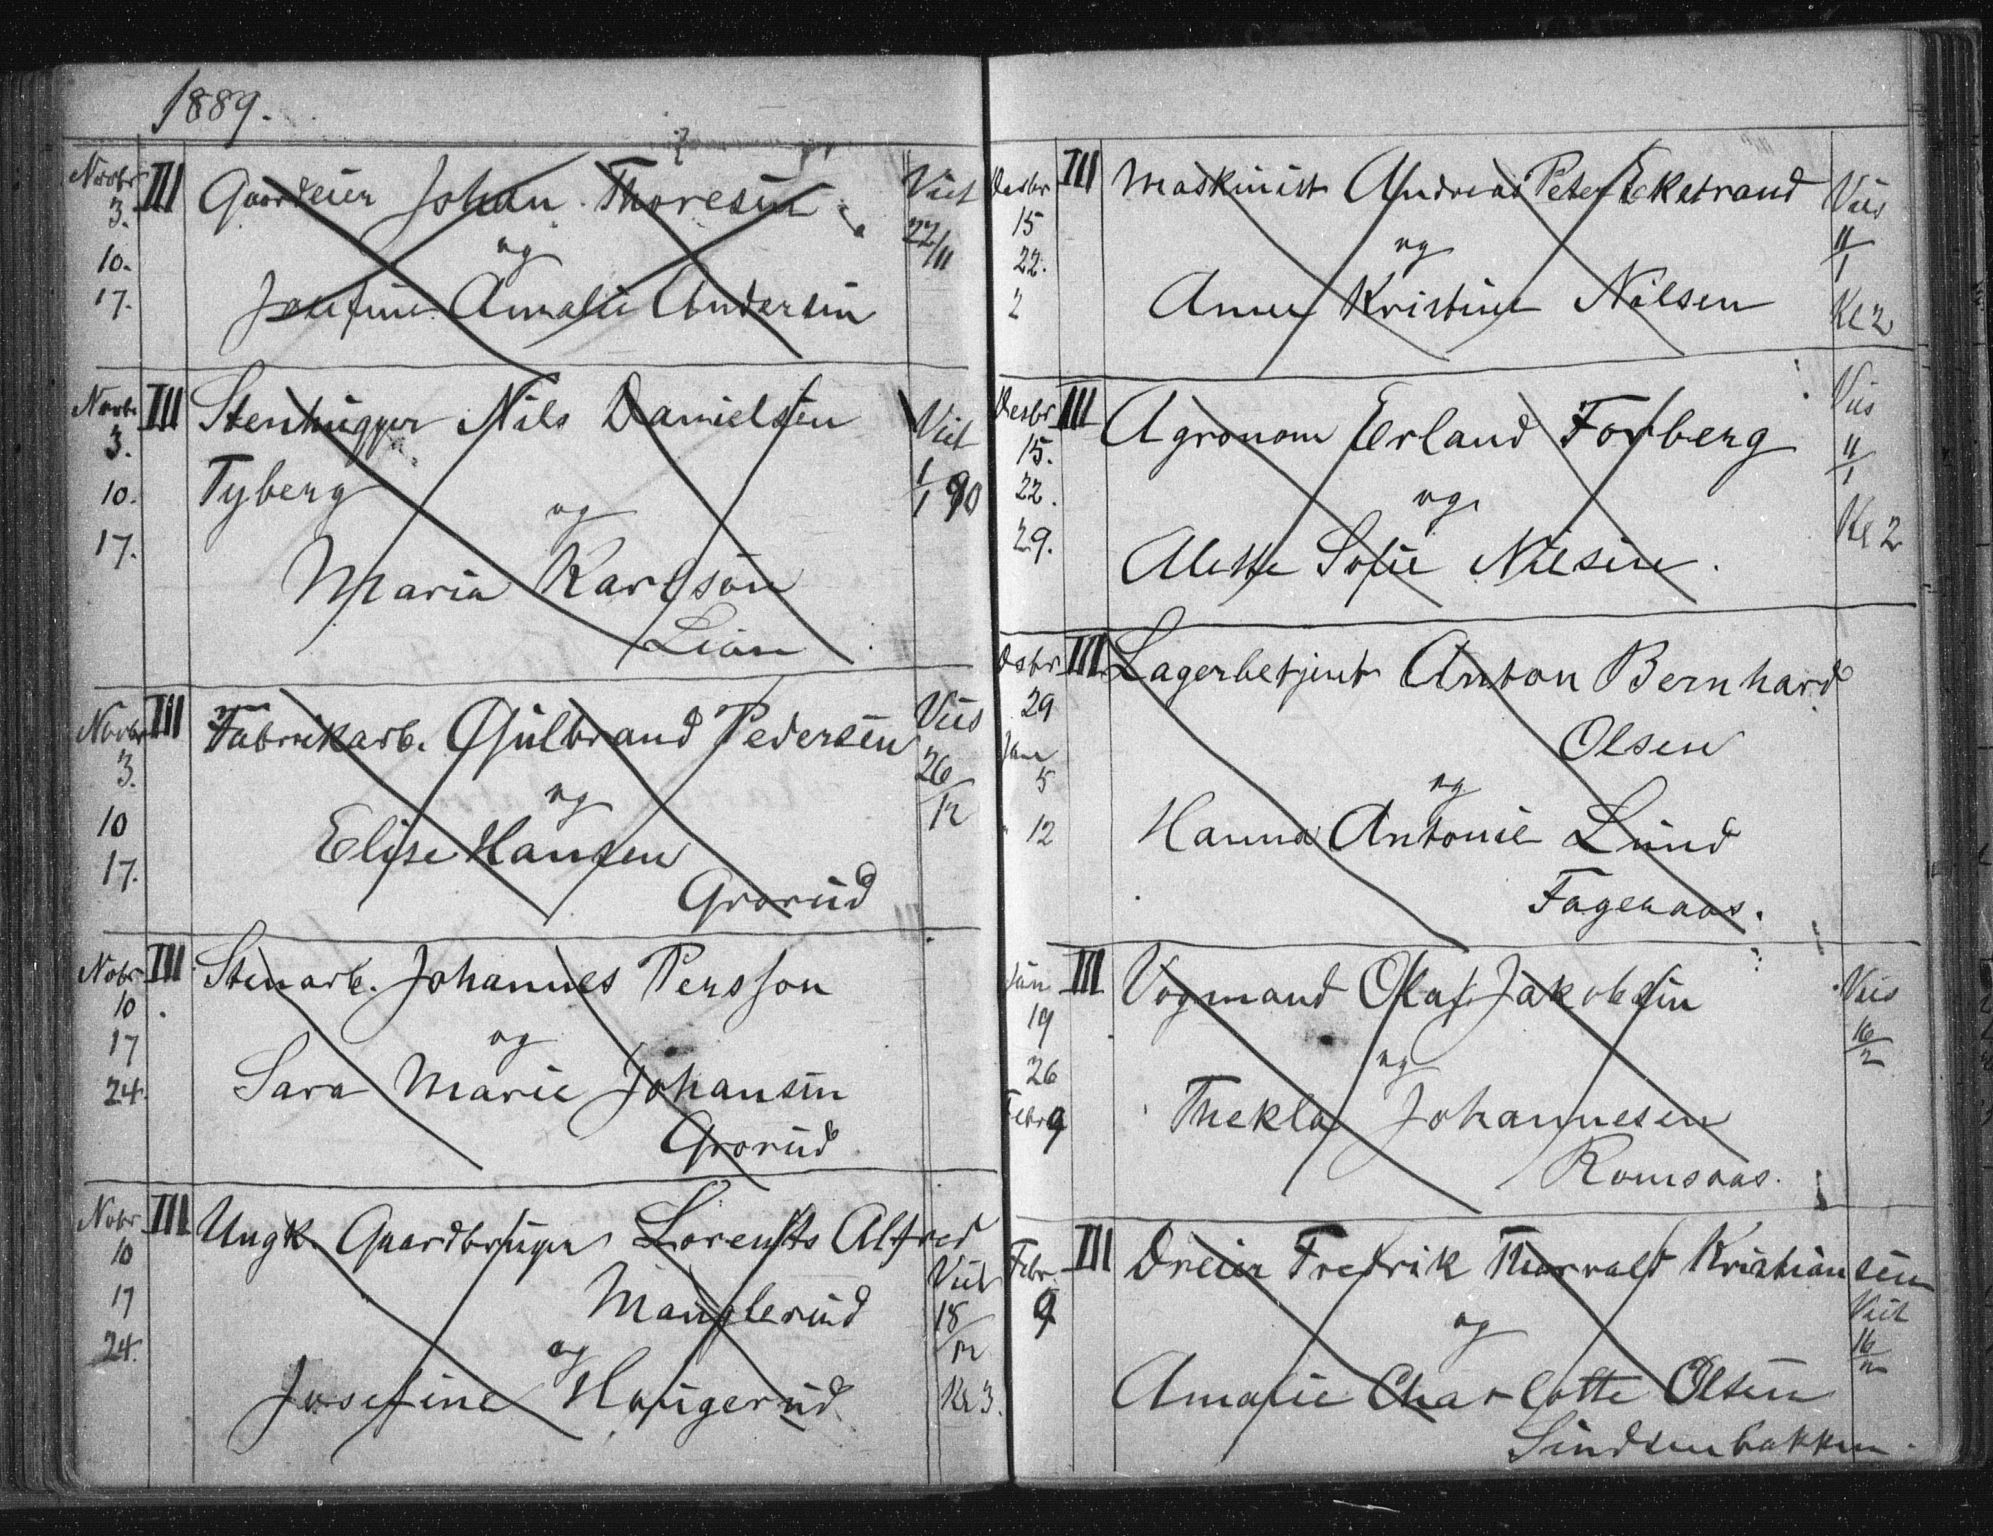 1889.
Novbr III Gaardeier Johan Thoresen Viet
3. 22/11
10. og
17. Josefine Amalie Andersen
Novbr III Stenhugger Nils Danielsen Viet
3. Tyberg 1/1 90
10. og
17. Maria Karlson
Lian
Novbr III Fabrikarb. Gulbrand Pedersen Vies
3. 26/12
10 og
17. Elise Hansen
Grorud
Nobr III Stenarb. Johannes Persson
10
17 og
24. Sara Marie Johansen
Grorud
Nobr III Ungk. Gaardbruger Lorents Alfred
10 Manglerud Viet
17 og 18/12
24. Josefine Haugerud Kl 3.
Desbr III Maskinist Andreas Peter Eckstrand Vies
15 11/1
22. og
2 Anne Kristine Nilsen Kl 2
Desbr III Agronom Erland Forberg Vies
15. 11/1
22. og
29. Alette Sofie Nilsen. Kl 2
Desbr III Lagerbetjent Anton Bernhard
29 Olsen
Jan
5 og
" 12 Hanna Antonie Lund
Fagenaas.
Jan III Vogmand Olaf Jakobsen Vies
19 16/2
26 og
Febr 9 Thekla Johannesen
Romsaas.
Febr. III Dreier Fredrik Thorvald Kristiansen
9 og Viet 16/2
Amalie Charlotte Olsen
Sindsenbakken.